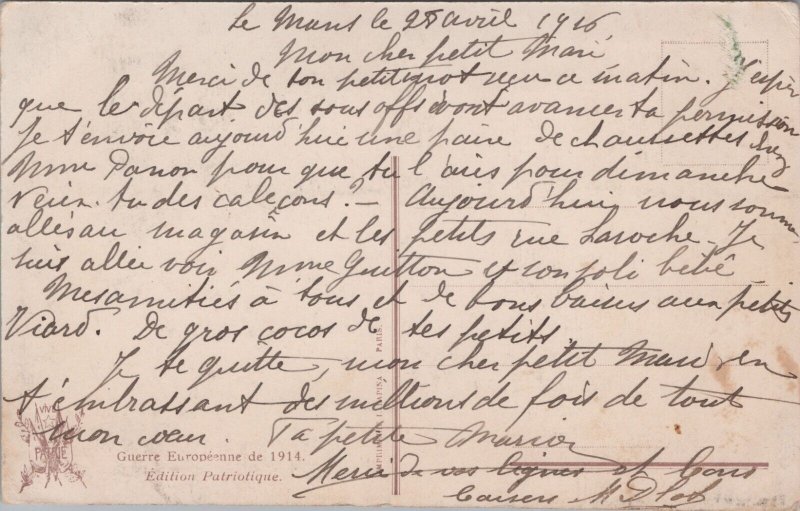 Le Mans le 28 avril 1916
Mon cher petit Mari
Merci de ton petit mot reçu ce matin. J'espère
que le départ des sous offs vont avancer ta permission
Je t'envoie aujourd hui une paire de chaussettes chez
Mme Panon pour que tu l'aies pour dimanche
Veux-tu des caleçons? - Aujourd'hui nous sommes
allés au magasin et les petits rue Laroche. Je
suis allée voir Mme Guitton et son joli bébé
Mes amitiés à tous et de bons baisers aux petits
Viard. De gros cocos de tes petits.
Je te quitte, mon cher petit Mari en
t'embrassant des millions de fois de tout
mon cœur. Ta petite Marie
PATRIE
Guerre Européenne de 1914.
Édition Patriotique.
PARIS.
Merci de vos lignes et bons
baisers M